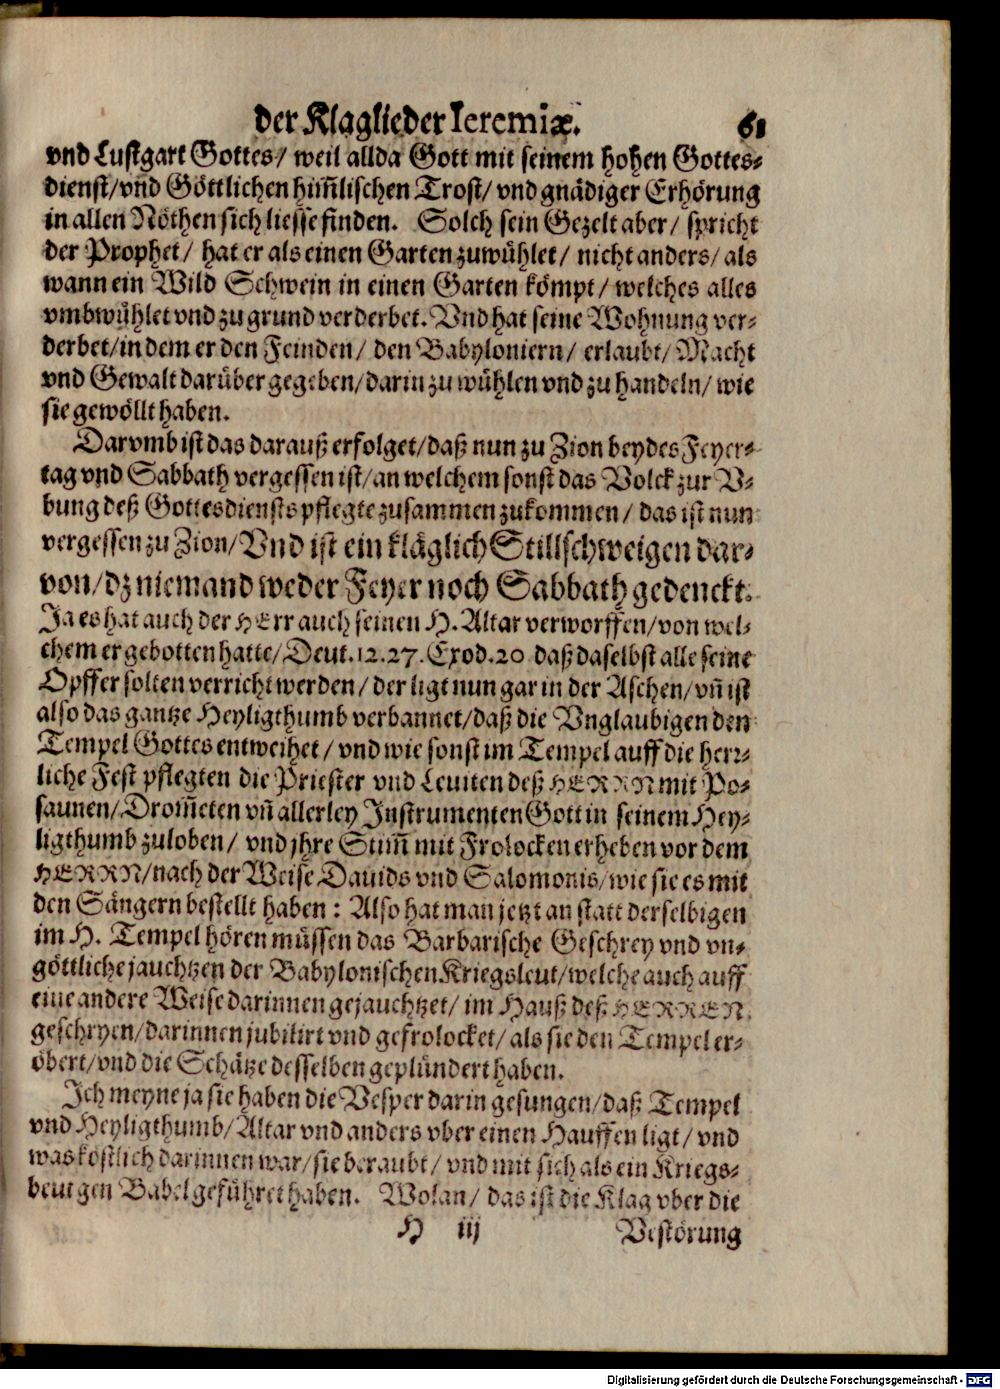 der Klaglieder Ieremiæ. 61
vnd Lustgart Gottes/ weil allda Gott mit seinem hohen Gottes-
dienst/vñd Göttlichen him̃lischen Trost/ vnd gnädiger Erhörung
in allen Nöthen sich liesse finden. Solch sein Gezelt aber/ spricht
der Prophet/ hat er als einen Garten zuwühlet/ nicht anders/ als
wann ein Wild Schwein in einen Garten kömpt/ welches alles
vmbwühlet vnd zu grund verderbet. Vnd hat seine Wohnung ver-
derbet/in dem er den Feinden/ den Babyloniern/ erlaubt/ Macht
vnd Gewalt darüber gegeben/darin zu wühlen vnd zu handeln/ wie
sie gewöllt haben.
Darvmb ist das darauß erfolget/daß nun zu Zion beydes Feyer-
tag vnd Sabbath vergessen ist/an welchem sonst das Volck zur V-
bung deß Gottesdiensts pflegte zusammen zukommen/ das ist nun
vergessen zu Zion/Vnd ist ein kläglich Stillschweigen dar-
von/dz niemand weder Feyer noch Sabbath gedenckt.
Ja es hat auch der HErr auch seinen H. Altar verworffen/von wel-
chem er gebotten hatte/Deut.12.27.Exod.20 daß daselbst alle seine
Opffer solten verricht werden/der ligt nun gar in der Aschen/vñ ist
also das gantze Heyligthumb verbannet/daß die Vnglaubigen den
Tempel Gottes entweihet/ vnd wie sonst im Tempel auff die herr-
liche Fest pflegten die Priester vnd Leuiten deß HERRN mit Po-
saunen/Drom̃eten vñ allerley Instrumenten Gott in seinem Hey-
ligthumb zuloben/ vnd jhre Stim̃ mit Frolocken erheben vor dem
HERRN/nach der Weise Dauids vnd Salomonis/wie sie es mit
den Sängern bestellt haben: Also hat man jetzt an statt derselbigen
im H. Tempel hören müssen das Barbarische Geschrey vnd vn-
göttliche jauchtzen der Babylonischen Kriegsleut/welche auch auff
eine andere Weise darinnen gejauchtzet/ im Hauß deß HERREN
geschryen/darinnen jubilirt vnd gefrolocket/als sie den Tempel er-
obert/vnd die Schätze desselben geplündert haben.
Ich meyne ja sie haben die Vesper darin gesungen/daß Tempel
vnd Heyligthumb/Altar vnd anders vber einen Hauffen ligt/ vnd
was köstlich darinnen war/sie beraubt/ vnd mit sich als ein Kriegs-
beut gen Babel geführet haben. Wolan/ das ist die Klag vber die
H iij Vestörung
Digitalisierung gefördert durch die Deutsche Forschungsgemeinschaft - DFG